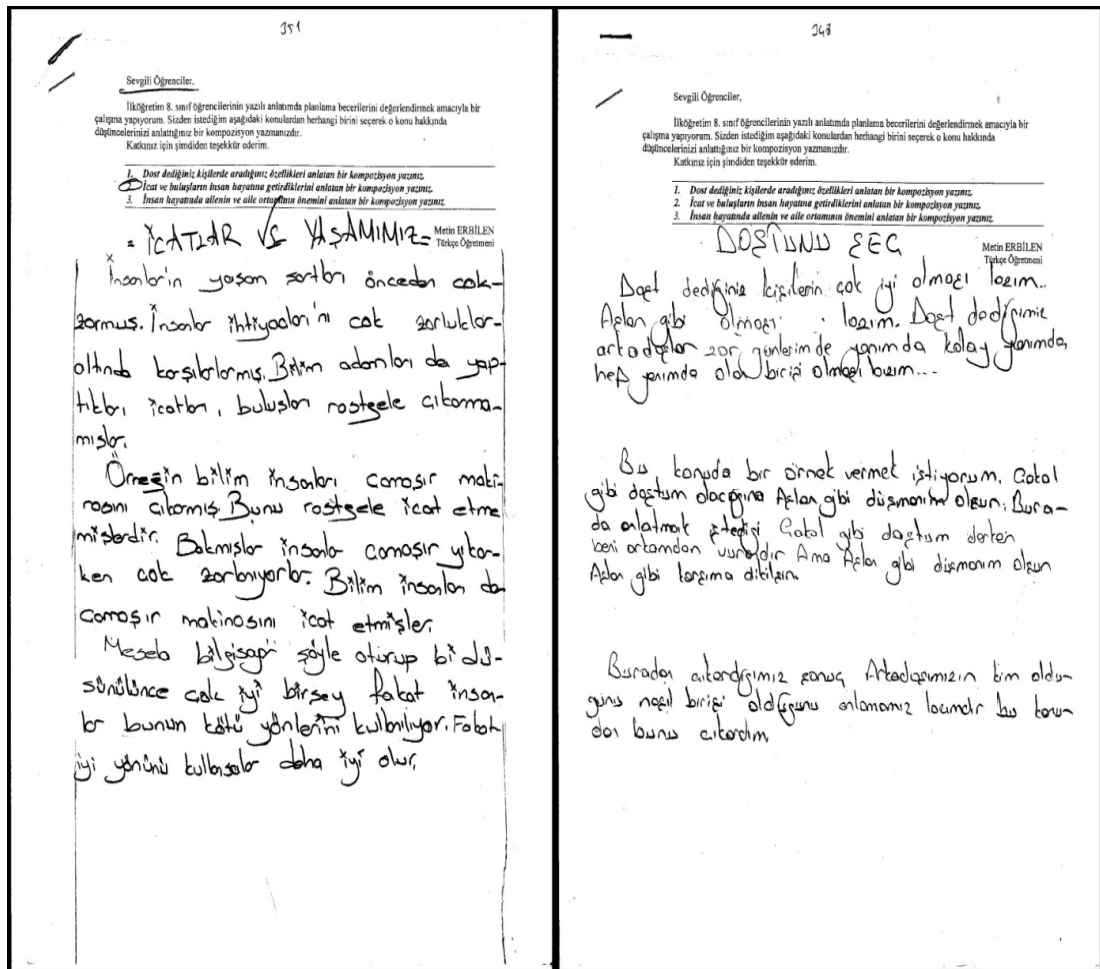 351
Sevgili Öğrenciler,
İlköğretim 8. sınıf öğrencilerinin yazılı anlatımda planlama becerilerini değerlendirmek amacıyla bir
çalışma yapıyorum. Sizden istediğim aşağıdaki konulardan herhangi birini seçerek o konu hakkında
düşüncelerinizi anlattığınız bir kompozisyon yazmanızdır.
Katkınız için şimdiden teşekkür ederim.
1. Dost dediğiniz kişilerde aradığınız özellikleri anlatan bir kompozisyon yazınız.
2. İcat ve buluşların insan hayatına getirdiklerini anlatan bir kompozisyon yazınız.
3. İnsan hayatında ailenin ve aile ortamının önemini anlatan bir kompozisyon yazınız.
Metin ERBİLEN
Türkçe Öğretmeni
= İCATLAR VE YAŞAMIMIZ =
İnsanlar'ın yaşam şartları önceden çok-
zormuş. İnsanlar ihtiyaçları'nı çok zorluklar-
altında karşılarlarmış. Bilim adamları da yap-
tıkları icatları, buluşları rastgele çıkarma-
mışlar.
Örneğin bilim insanları çamaşır maki-
nasını çıkarmış. Bunu rastgele icat etme
mişlerdir. Bakmışlar insanlar çamaşır yıkar-
ken çok zorlanıyorlar. Bilim insanları da
çamaşır makinasını icat etmişler.
Mesela bilgisayar'ı şöyle oturup bi dü-
şünülünce çok iyi birşey fakat insan-
lar bunun kötü yönlerini kullanılıyor. Fakat
iyi yönünü kullansalar daha iyi olur.
348
Sevgili Öğrenciler,
İlköğretim 8. sınıf öğrencilerinin yazılı anlatımda planlama becerilerini değerlendirmek amacıyla bir
çalışma yapıyorum. Sizden istediğim aşağıdaki konulardan herhangi birini seçerek o konu hakkında
düşüncelerinizi anlattığınız bir kompozisyon yazmanızdır.
Katkınız için şimdiden teşekkür ederim.
1. Dost dediğiniz kişilerde aradığınız özellikleri anlatan bir kompozisyon yazınız.
2. İcat ve buluşların insan hayatına getirdiklerini anlatan bir kompozisyon yazınız.
3. İnsan hayatında ailenin ve aile ortamının önemini anlatan bir kompozisyon yazınız.
Metin ERBİLEN
Türkçe Öğretmeni
DOSTUNU SEÇ
Dost dediğiniz kişilerin çok iyi olması lazım..
Aslan gibi olması lazım. Dost dediğimiz
arkadaşlar zor günlerimde yanımda kolay yanımda,
hep yanımda olan birisi olması lazım...
Bu konuda bir örnek vermek istiyorum. Çakal
gibi dostum olacağına Aslan gibi düşmanım olsun. Bura-
da anlatmak istediği Çakal gibi dostum derken
beni arkamdan vurandır Ama Aslan gibi düşmanım olsun
Aslan gibi karşıma dikilsin.
Buradan çıkardığımız sonuç Arkadaşımızın kim oldu-
ğunu nasıl birisi olduğunu anlamamız lazımdır bu konu-
dan bunu çıkardım.